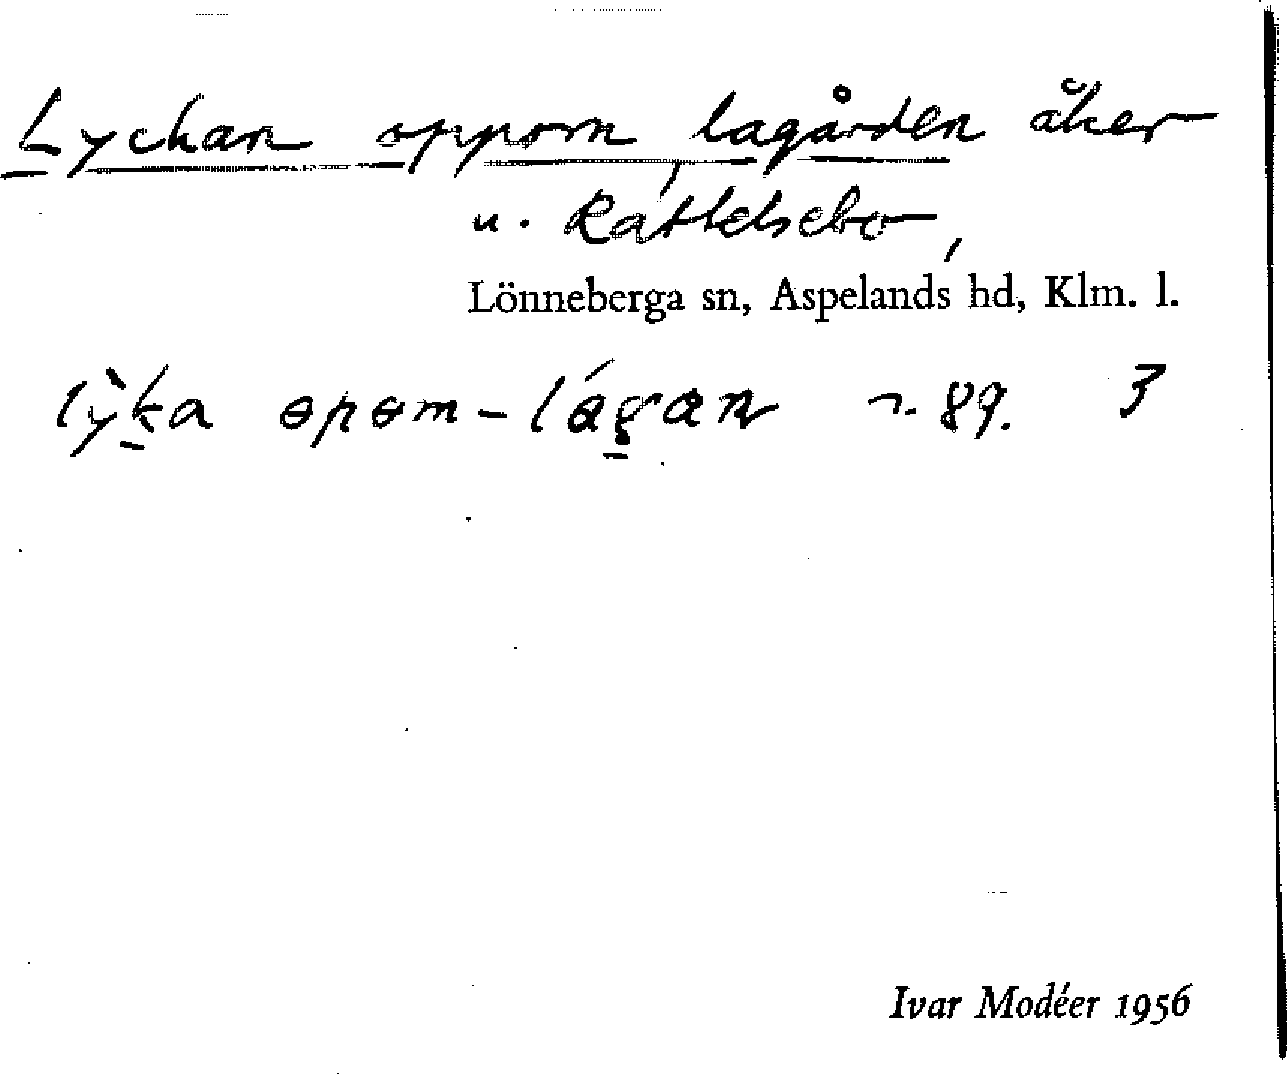 Lyckan oppom lagården åker
u. Rätkelsebo,
Lönneberga sn, Aspelands hd, Klm. l.
lỳka opom-lágan 89. 3
Ivar Modéer 1956